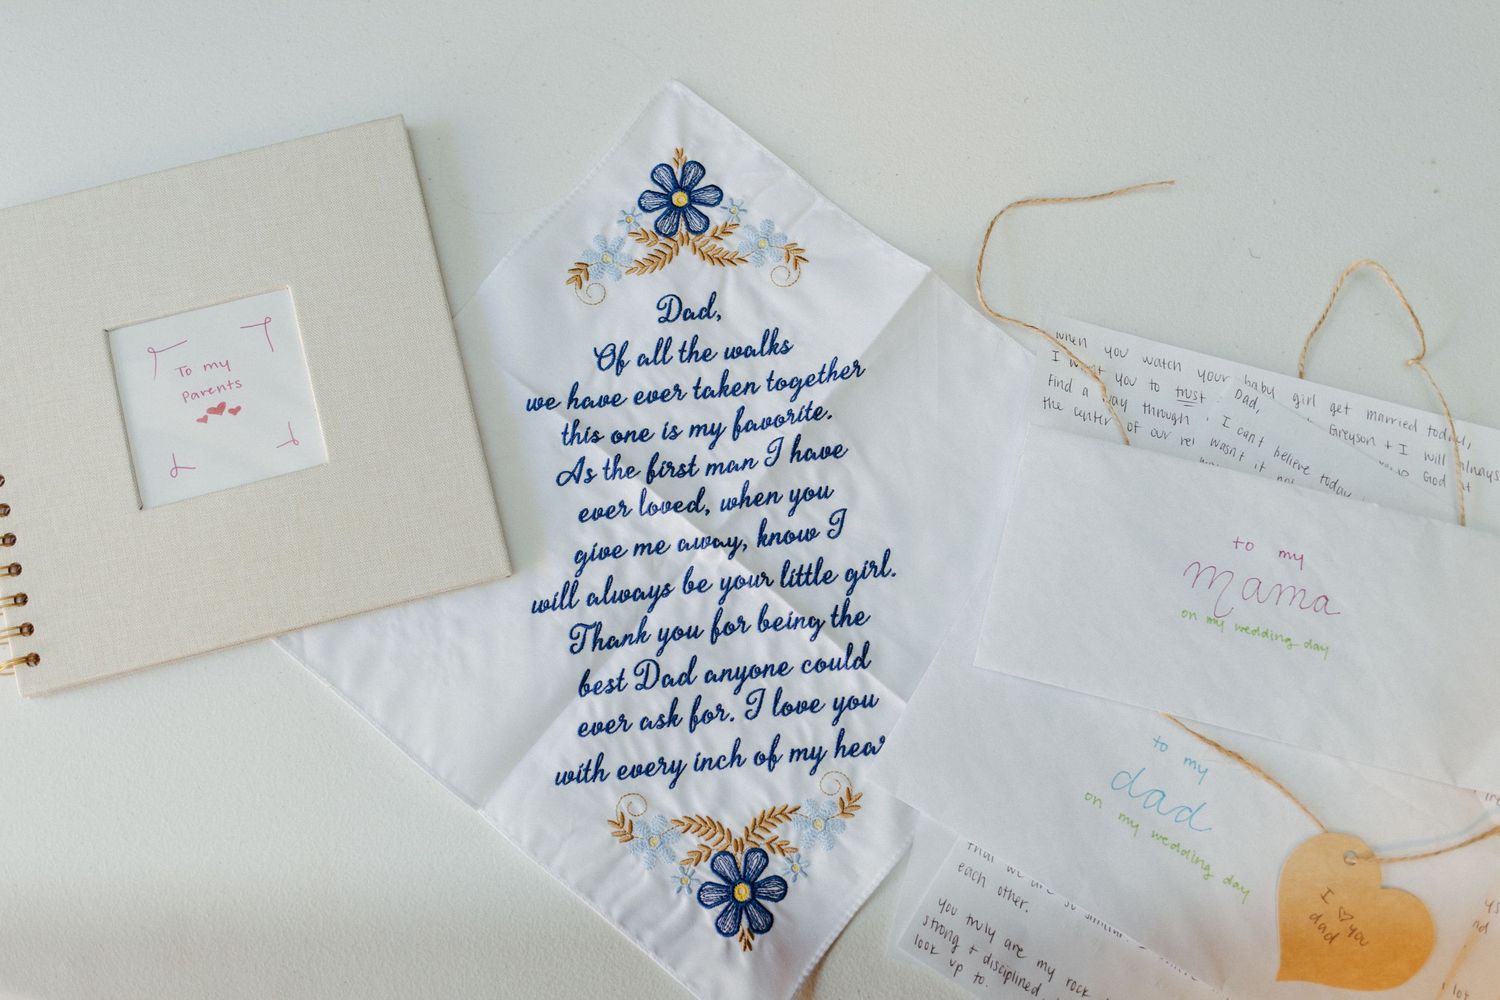 To my
parents
Dad,
Of all the walks
we have ever taken together
this one is my favorite.
As the first man I have
ever loved, when you
give me away, know I
will always be your little girl.
Thank you for being the
best Dad anyone could
ever ask for. I love you
with every inch of my hear
when you watch your baby girl get married today,
I want you to trust Dad, Greyson + I will always
find a way through. I can't believe today
the center of our rel wasn't it God
to my
mama
on my wedding day
to my
dad
on my wedding day
I ♡ you
dad
that we are so similar
each other.
you truly are my rock
strong + disciplined
look up to.